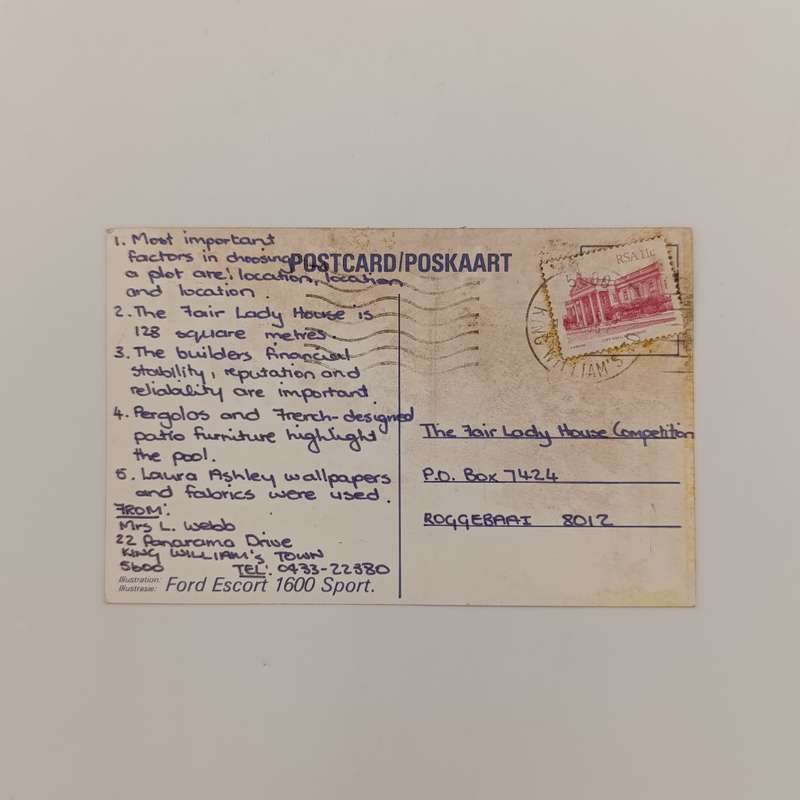 1. Most important
factors in choosing
a plot are: location, location
and location.
2. The Fair Lady House is
128 square metres.
3. The builders financial
stability, reputation and
reliability are important.
4. Pergolas and French-designed
patio furniture highlight
the pool.
5. Laura Ashley wallpapers
and fabrics were used.
FROM:
Mrs L. Webb
22 Panarama Drive
KING WILLIAM's TOWN
5600 TEL: 0433-22380
Illustration:
Illustrasie: Ford Escort 1600 Sport.
POSTCARD/POSKAART
RSA 11c
KING WILLIAM'S
The Fair Lady House Competition
P.O. Box 7424
ROGGEBAAI 8012